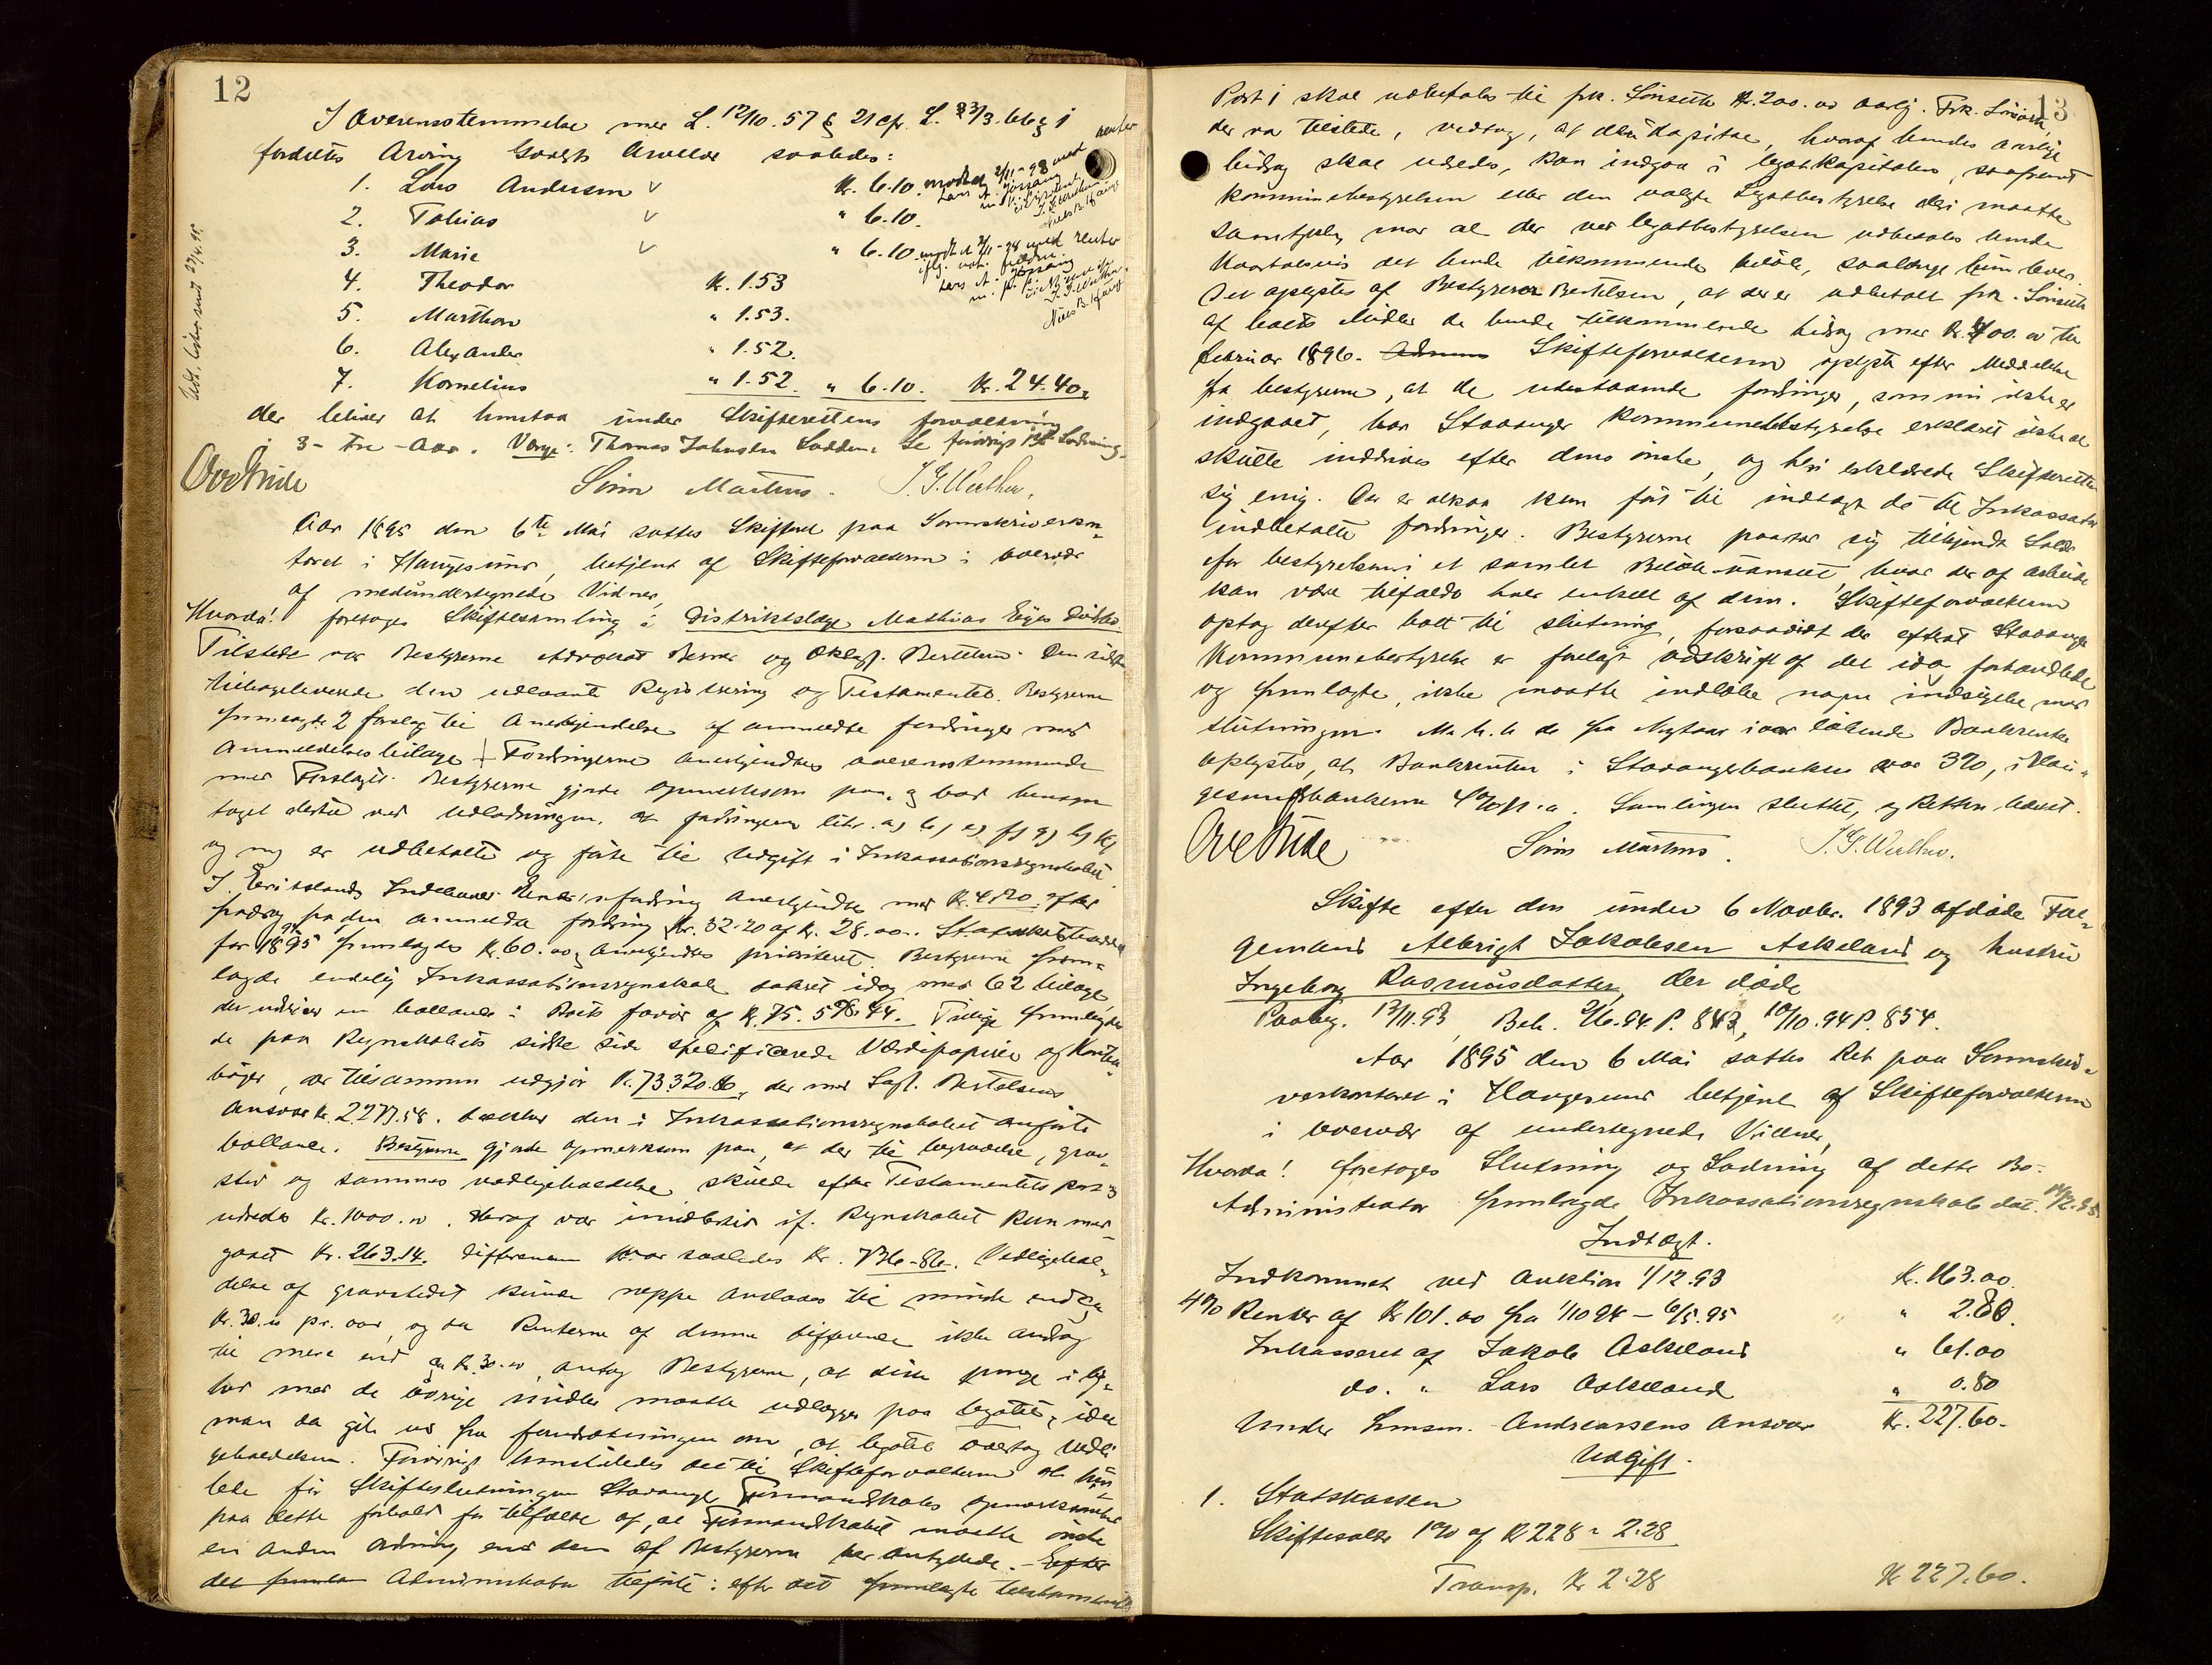 12
I Overensstemmelse med L. 12/10.57 § 21 cfr. L. 23/3.66 § 1
fordeltes Arving Arvelod saaledes:
1. Lars Andersen v Kr. 6.10 modtag 2/11-98 med renter
2. Tobias v " 6.10.
3. Marie v " 6.10 modt d 2/11-98 med renter
Lars A. Jøssang
4. Theodor Kr. 1.53
5. Marthon " 1.53.
6. Alexander " 1.52.
7. Kornelius " 1.52. " 6.10. Kr. 24.40,
der bliver at henstaa under Skifterettens forvaltning
i 3- tre - Aar. Værge: Thomas Johnsen Lodden. Se forøvrigt Lodning.
Ove Tride Sivin Martens. J. G. Walther.
Aar 1895 den 6te Mai sattes Skifteret paa Sorenskriverkon-
toret i Haugesund, betjent af Skifteforvalteren i overvær
af medundertegnede Vidner,
Hvorda! foretoges Skiftesamling i Distriktslæge Mathias Eges Dødsbo
Tilstede var Bestyrerne Advokat Berner og Oklagf. Bertelsen. Den sidste
tilbageleverede den udlaante Registrering og Testamentet. Bestyrerne
fremlagde 2 forslag til Anerkjendelse af anmeldte fordringer med
Anmeldelsesbilage. Fordringerne anerkjendtes overensstemmende
med Forslaget. Bestyrerne gjorde opmerksom paa, og bad hensyn
taget dertil ved udlodningen, at fordringerne litr. a) b) e) f) g) h) k)
og m) er udbetalte og førte til Udgift i Inkassationsregnskabet.
fordring anerkjendtes med Kr. 4.20 efter
fradrag fra den anmeldte fordring Kr. 32.20 af Kr. 28.00. Statsskatterestance
for 1895 fremlagdes Kr. 60.00, anerkjendtes prioriteret. Bestyrerne frem-
lagde endelig Inkassationsregnskab dateret idag med 62 bilage,
der udviser en ballance i Boets favør af Kr. 75.598.44. Tillige fremlagdes
de paa Regnskabets sidste side specificerede Værdipapirer og Kontra-
bøger, der tilsammen udgjør Kr. 73320.86, der med Sagf. Bertelsens
Ansvar Kr. 2277.58. dækker den i Inkassationsregnskabet anførte
ballance. Bestyrerne gjorde opmerksom paa, at der til begravelse, grav-
sted og sammes vedligeholdelse skulde efter Testamentets post 3
udredes Kr. 1000.00. Heraf var imidlertid if. Regnskabet kun med-
gaaet Kr. 263.14. Differencen var saaledes Kr. 736.86. Vedligehol-
delse af gravstedet kunde neppe anslaaes til mindre end ca
Kr. 30.00 pr. aar, og da Renterne af denne difference ikke androg
til mere end ca Kr. 30.00, antog Bestyrerne, at disse penge i lig-
hed med de øvrige midler maatte udlægges paa legatet, idet
man da gik ud fra forudsætningen om, at legatet overtog vedli-
geholdelsen. Forøvrigt henstilledes det til Skifteforvalteren at hen-
lede før Skifteslutningen Stavanger Formandskabs opmerksomhed
paa dette forhold for tilfælde af, at Formandskabet maatte ønske
en anden Ordning end den af Bestyrerne her antydede. - Efter
det fremla Administrator tilførte: efter det fremlagte testamente
Udt. listo sendt 27/4.95.
13
Post 1 skal udbetales til frk. Sinsith Kr. 200.00 aarlig. Frk. Sinsith,
der var tilstede, vedtog, at den Kapital, hvoraf hendes aarlige
bidrag skal udredes, kan indgaa i legatkapitalen, saafremt
kommunebestyrelsen eller den valgte Legatbestyrelse deri maatte
samtykke, mod at der ved legatbestyrelsen udbetales hende
kvartalsvis det hende tilkommende beløb, saalænge hun lever.
Det oplystes af Bestyreren Bertelsen, at der er udbetalt frk. Sinsith
af boets Midler de hende tilkommende bidrag med Kr. 400.00 til
februar 1896. Skifteforvalteren oplyste efter Meddelelse
fra bestyrerne, at de udestaaende fordringer, som nu ikke er
indgaaet, har Stavanger kommunebestyrelse erklæret ikke at
skulle inddrives efter dens ønske, og heri erklærede Skifteretten
sig enig. Der er altsaa kun ført til indtægt de til Inkassator
indbetalte fordringer. Bestyrerne paastod sig tilkjendt Salær
for bestyrelsen i et samlet Beløb uanseet, hvad der af arbeide
kan være tilfaldt hver enkelt af dem. Skifteforvalteren
optog derefter boet til slutning, forsaavidt der efterat Stavanger
Kommunebestyrelse er forelagt Udskrift af det idag forhandlede
og fremlagte, ikke maatte indløbe nogen indsigelse mod
slutningen. M. h. t. de fra Nytaar iaar løbende Bankrenter
oplystes, at Bankrenten i Stavangerbanken var 3%, i Hau-
gesundsbankerne 4% p. a. Samlingen sluttet, og Retten hævet.
Ove Tride Sivin Martens. J. G. Walther.
Skifte efter den under 6 Novbr. 1893 afdøde Fæl-
gemand Albrigt Jakobsen Askeland og hustru
Ingeborg Rasmusdatter, der døde
Paabeg. 13/11.93, Beh. 2/6.94 P. 843, 10/10.94 P. 854.
Aar 1895 den 6 Mai sattes Ret paa Sorenskri-
verkontoret i Haugesund betjent af Skifteforvalteren
i overvær af undertegnede Vidner,
Hvorda! foretoges Slutning og Lodning af dette Bo.
Administrator fremlagde Inkassationsregnskab dat. 14/2.95.
Indtægt.
Indkommet ved Auktion 1/12.93 Kr. 163.00.
4% Renter af Kr 101.00 fra 1/10 94 – 6/5.95 " 2.80.
Inkasseret af Jakob Askeland " 61.00
do. " Lars Askeland " 0.80
Under Lensm. Andreassens Ansvar Kr. 227.60.
Udgift.
1. Statskassen
Skifteafgift 1% af Kr 228 = 2.28
Transp. Kr 2.28 Kr 227.60.